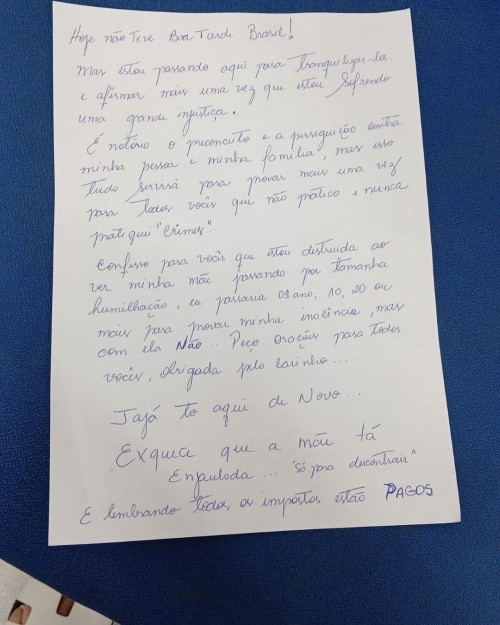 Hoje não Teve Boa Tarde Brasil!
Mas estou passando aqui para tranquilizar-los
e afirmar mais uma vez que estou Sofrendo
uma grande injustiça.
É notório o preconceito e a perseguição contra
minha pessoa e minha família, mas isso
tudo servirá para provar mais uma vez
para todos vocês que não pratico e nunca
pratiquei "Crimes".
Confesso para vocês que estou distruida ao
ver minha mãe passando por tamanha
humilhação, eu passaria 01 ano, 10, 20 ou
mais para provar minha inocência, mas
com ela Não... Peço orações para todos
vocês, obrigada pelo carinho...
Jajá to aqui de Novo...
Exquia que a mãe tá
Enjaulada... "só para descontrair"
E lembrando todos os impostos estão PAGOS